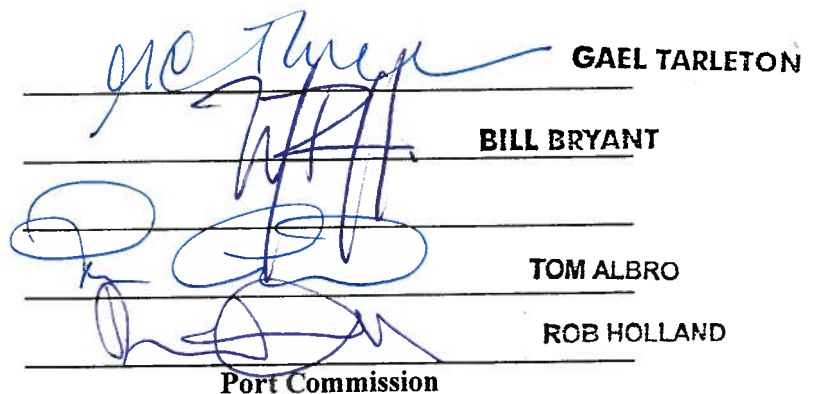 GAEL TARLETON
BILL BRYANT
TOM ALBRO
ROB HOLLAND
Port Commission